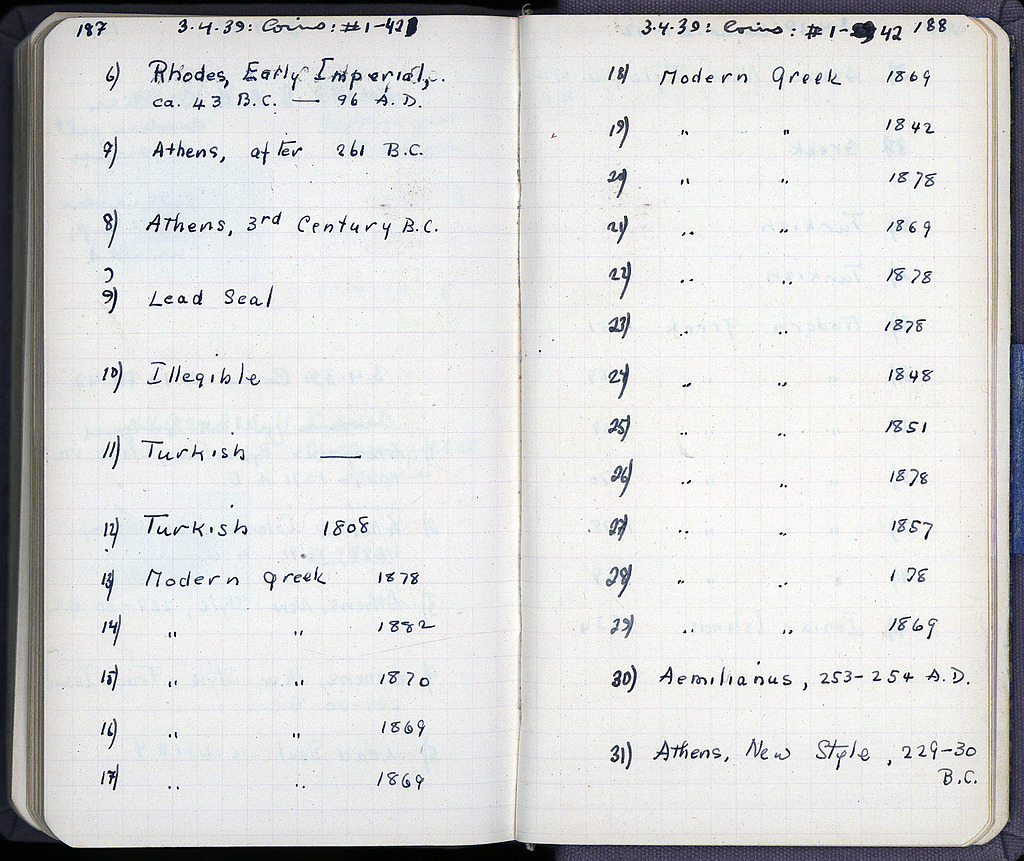 187 3.4.39: Coins: #1-42
6) Rhodes, Early Imperial,
ca. 43 B.C. — 96 A.D.
7) Athens, after 261 B.C.
8) Athens, 3rd Century B.C.
9) Lead Seal
10) Illegible
11) Turkish —
12) Turkish 1808
13) Modern Greek 1878
14) " " 1882
15) " " 1870
16) " " 1869
17) " " 1869
3.4.39: Coins: #1-42 188
18) Modern Greek 1869
19) " " 1842
20) " " 1878
21) " " 1869
22) " " 1878
23) " " 1878
24) " " 1848
25) " " 1851
26) " " 1878
27) " " 1857
28) " " 178
29) " " 1869
30) Aemilianus, 253-254 A.D.
31) Athens, New Style, 229-30
B.C.